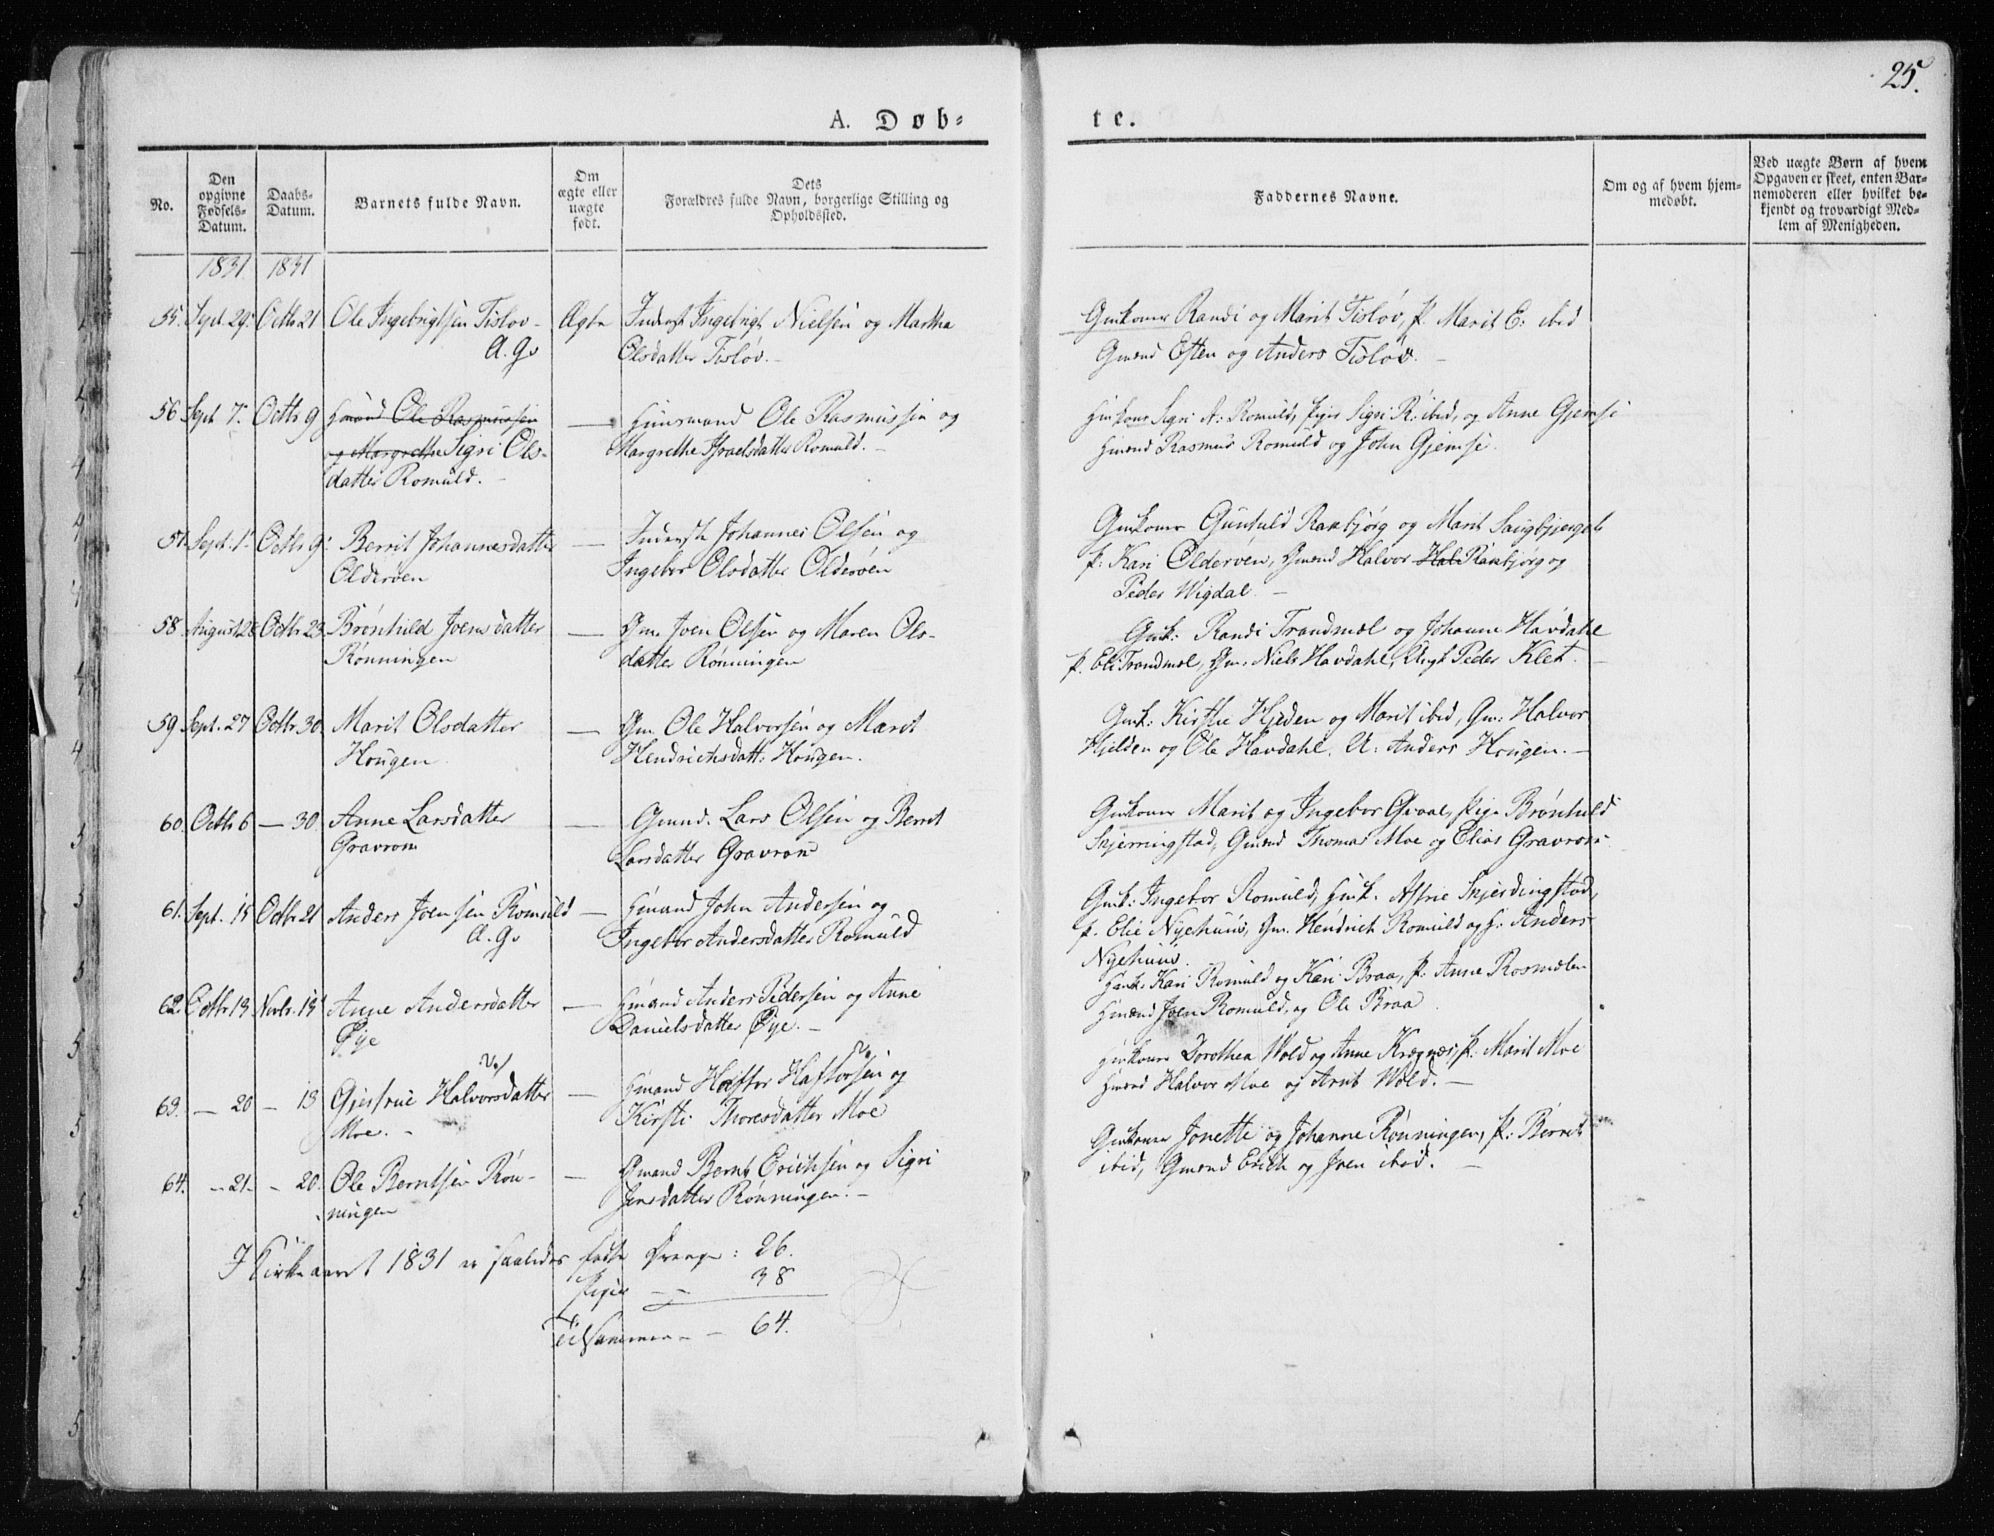 25.
A. Døb-
te.
No.
Den opgivne Fødsels-Datum.
Daabs-Datum.
Barnets fulde Navn.
Om ægte eller uægte født.
Dets Forældres fulde Navn, borgerlige Stilling og Opholdssted.
Faddernes Navne.
Om og af hvem hjem-medøbt.
Ved uægte Børn af hvem Opgaven er skeet, enten Bar-nemoderen eller hvilket be-kjendt og troværdigt Med-lem af Menigheden.
1831. 1831
55. Sept. 29. Octbr 21 Ole Ingebrigtsen Tisløv Ægte Inderst Ingebrigt Nielsen og Martha
A. G. Olsdatter Tisløv.
Gmkoner Randi og Marit Tisløv, P. Marit E. ibid
Gmænd Esten og Anders Tisløv.
56. Sept 7. Octbr 9 Hmand Ole Rasmussen — Huusmand Ole Rasmussen og
og Margrethe Sigri Ols- Margrethe Israelsdatter Romuld.
datter Romuld.
Hmkone Sigri A. Romuld, Pigr Sigri R. ibid, og Anne Gjemse
Hmænd Rasmus Romuld og John Gjemse.
57. Sept. 1. Octbr 9. Berrit Johannesdatter — Inderste Johannes Olsen og
Olderøen Ingebor Olsdatter Olderøen
Gmkoner Gunhild Raabjørg og Marit
P. Kari Olderøen, Gmænd Halvor Hal Raabjørg og
Peder Wigdal.
58. August 28 Octbr 23. Brønhild Joensdatter — Gm. Joen Olsen og Maren Ols-
Rønningen datter Rønningen
Gmk: Randi Trandmæl og Johanne Havdahl
P. Eli Trandmæl, Gm. Niels Havdahl, Ungk Peder Klet.
59. Sept. 27 Octbr. 30. Marit Olsdatter — Gm. Ole Halvorsen og Marit
Hougen Hendrichsdatt: Hougen.
Gmk: Kirstie Hjelden og Marit ibid, Gm: Halvor
Hjelden og Ole Havdahl. U: Anders Hougen.
60. Octbr 6 — 30. Anne Larsdatter — Gmand. Lars Olsen og Berret
Gravrom Larsdatter Gravrom
Gmkoner Marit og Ingebor Gvaal, Pige Brønhild
Skjerringstad, Gmænd Thomas Moe og Elias Gravrom
61. Sept. 15 Octbr. 21 Anders Joensen Romuld — Hmand John Andersen og
A. G. Ingebor Andersdatter Romuld
Gmk: Ingebor Romuld, Hmk. Skjerdingstad,
P. Elie Nyehuus, Gm. Hendrich Romuld og H: Anders
Nyehuus.
62. Octbr 13 Novbr. 13 Anne Andersdatter — Hmand Anders Pedersen og Anne
Øye Danielsdatter Øye.
Hmk: Kari Romuld og Kari Braa, P: Anne Rosmælen
Hmænd Joen Romuld, og Ole Braa
63. — 20 — 13 Gjertrue Halvorsdatter — Hmand Haftor Haftorsen og
Moe. Kirsti Thoresdatter Moe
Hmkoner Dorothea Wold og Anne Krægnæs, P: Marit Moe
Hmænd Halvor Moe og Arnt Wold.
64. — 21. — 20. Ole Berntsen Røn- — Gmand Bernt Erichsen og Sigri
ningen Jensdatter Rønningen.
Gmkoner Jonette og Johanne Rønningen, P: Berrit
ibid, Gmænd Erich og Joen ibid.
I Kirkeaaret 1831 er saaledes fødte Drenge: 26.
Piger — 38
Tilsammen — 64.